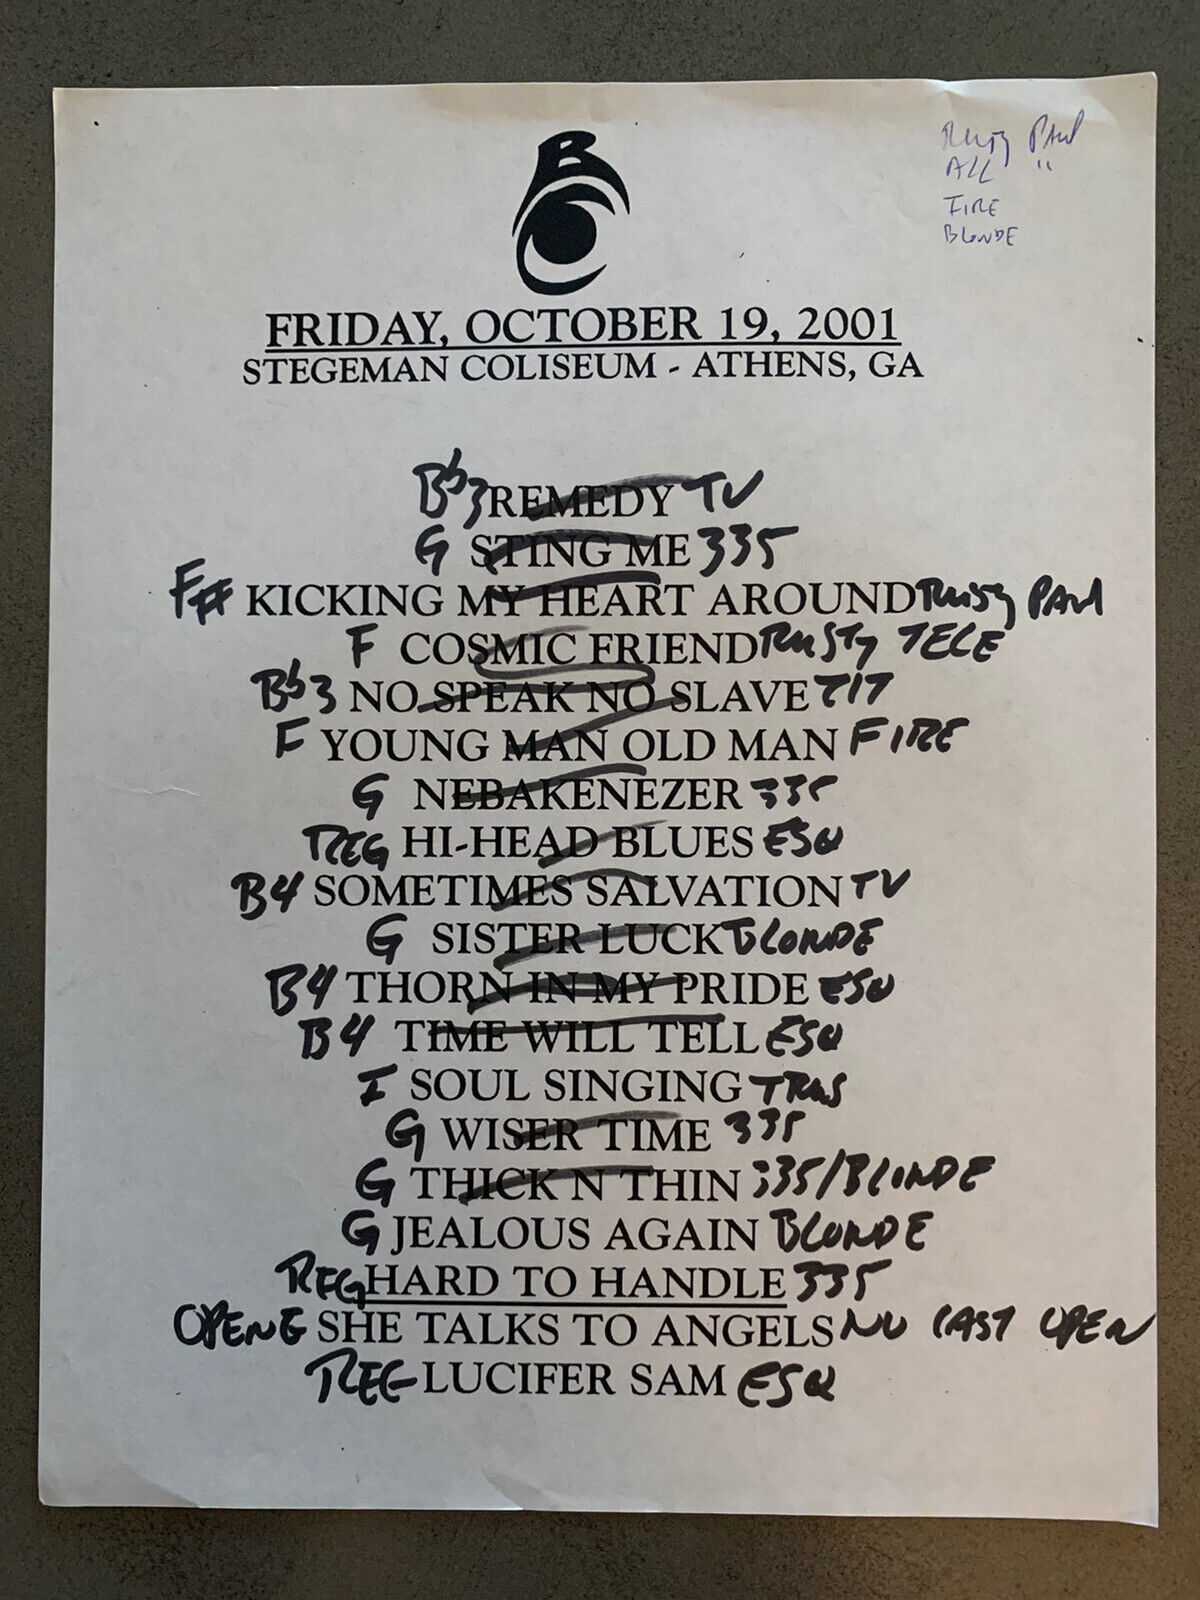 B
C
Rusty Paul
ALL "
FIRE
BLONDE
FRIDAY, OCTOBER 19, 2001
STEGEMAN COLISEUM - ATHENS, GA
Bb3 REMEDY TV
G STING ME 335
F# KICKING MY HEART AROUND Rusty PAul
F COSMIC FRIEND RuSTy TELE
Bb3 NO SPEAK NO SLAVE
F YOUNG MAN OLD MAN FIRE
G NEBAKENEZER 335
REG HI-HEAD BLUES ESQ
B4 SOMETIMES SALVATION TV
G SISTER LUCK BLONDE
B4 THORN IN MY PRIDE ESQ
B4 TIME WILL TELL ESQ
I SOUL SINGING
G WISER TIME 335
G THICK N THIN 335/BLONDE
G JEALOUS AGAIN BLONDE
REG HARD TO HANDLE 335
OPEN E SHE TALKS TO ANGELS OPEN
REG LUCIFER SAM ESQ